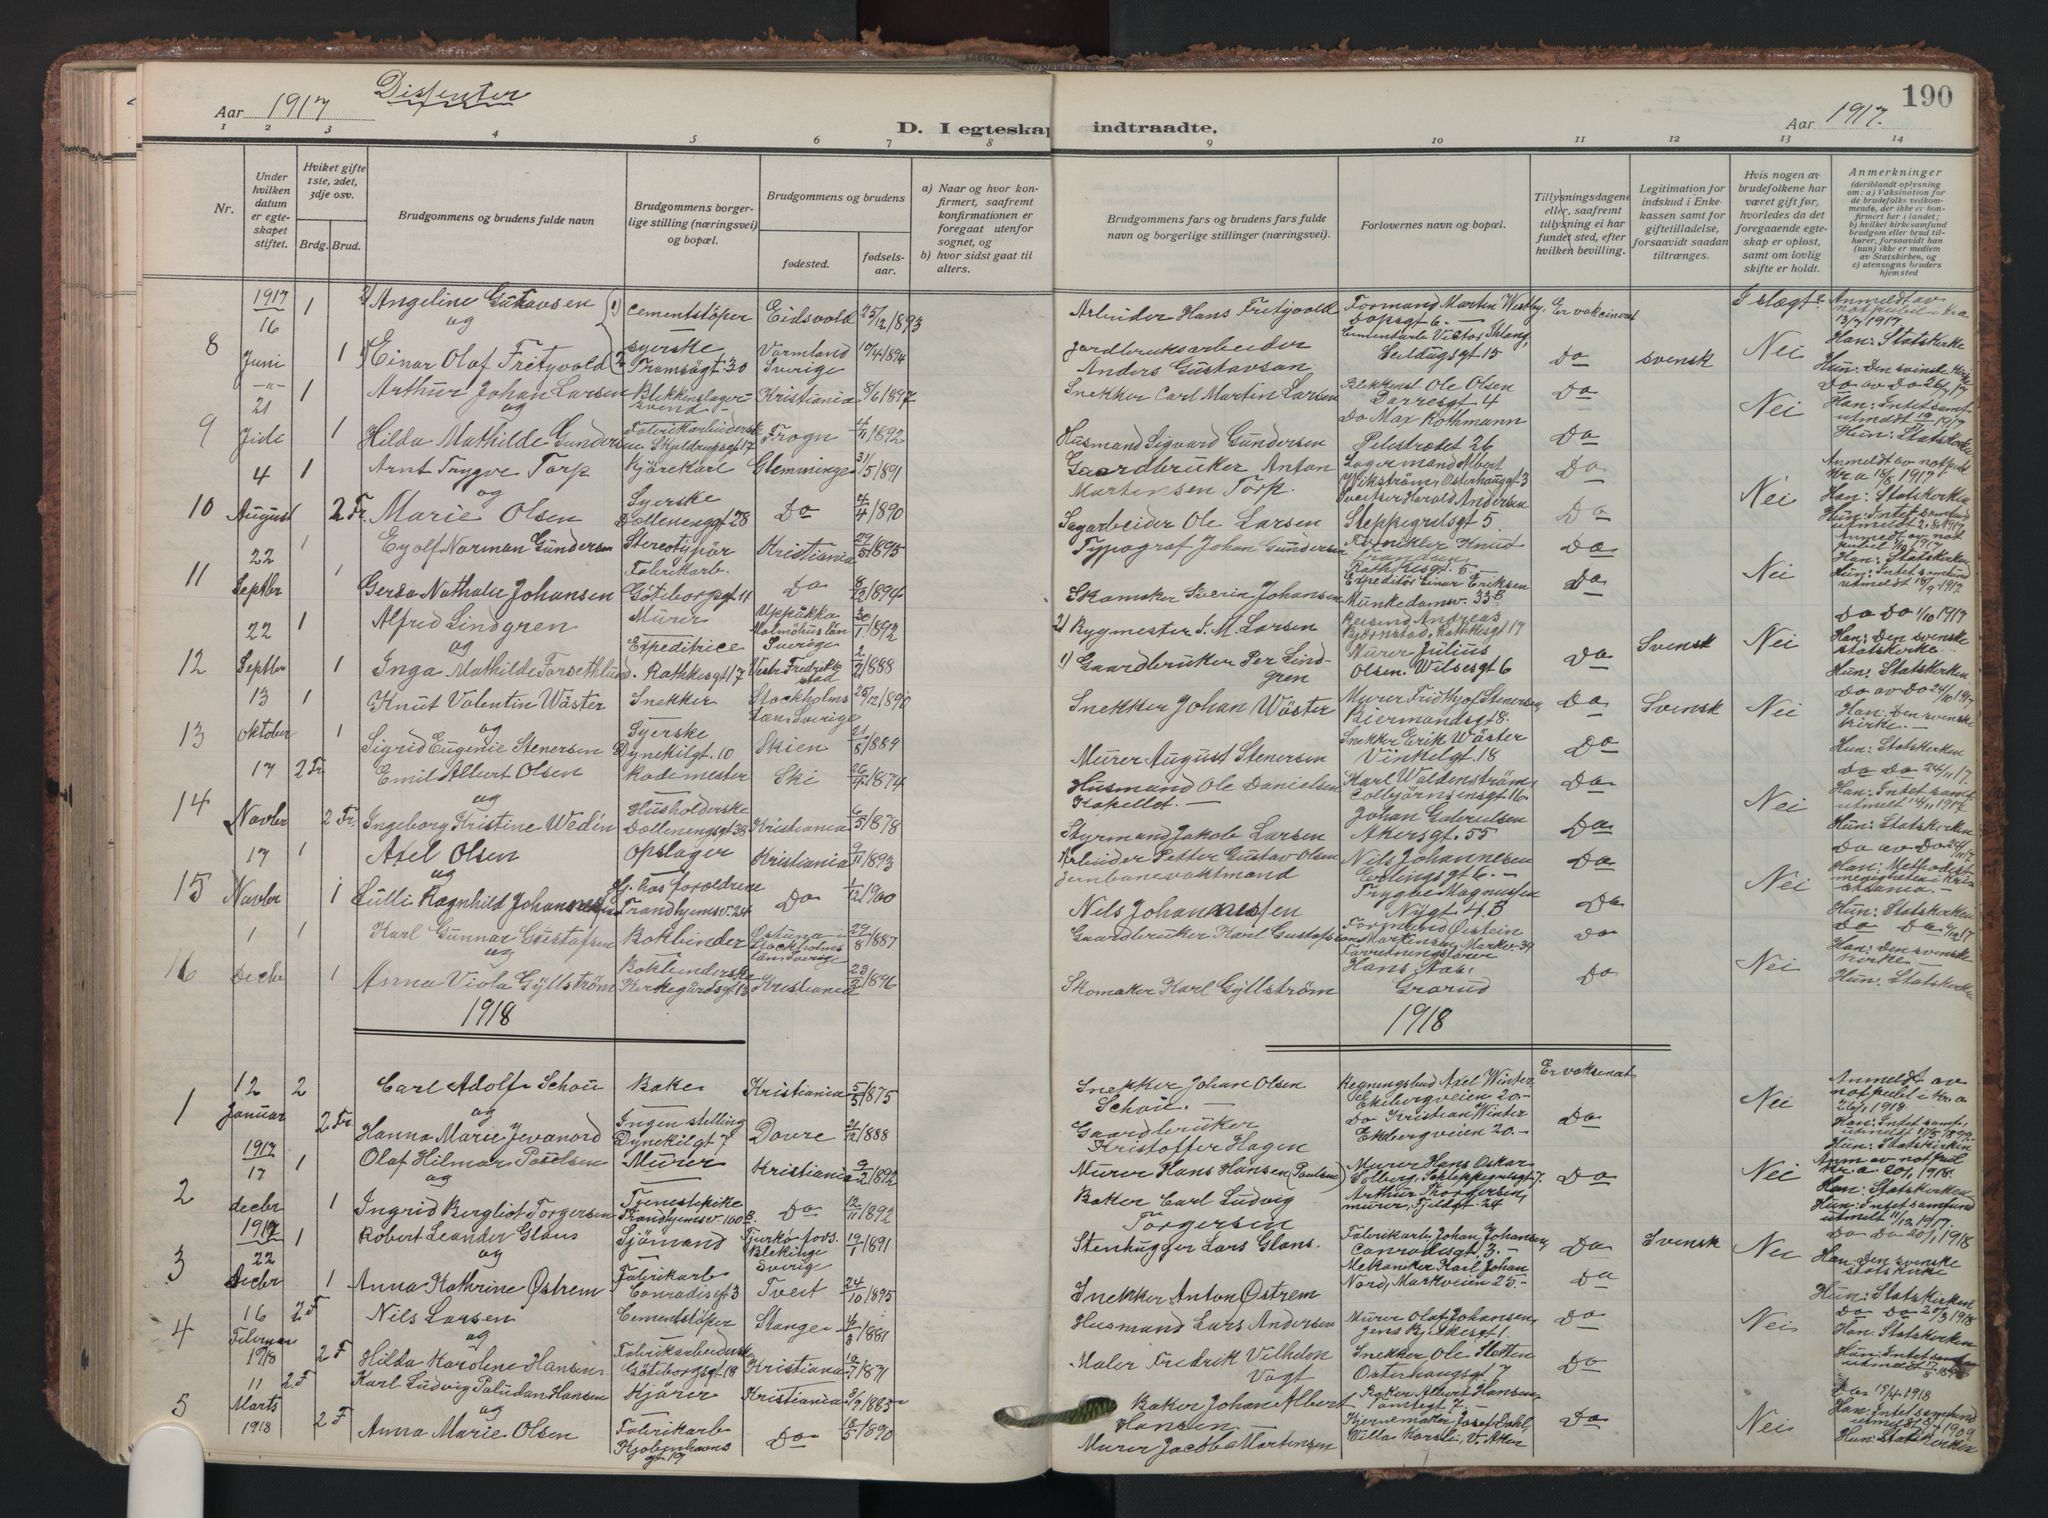 Dissenter
Aar 1917
D. I egteskap indtraadte.
Aar 1917.
190
1 2 3 4 5 6 7 8 9 10 11 12 13 14
Nr.
Under hvilken datum er egteskapet stiftet.
Hviket gifte 1ste, 2det, 3dje osv.
Brdg. Brud.
Brudgommens og brudens fulde navn
Brudgommens borgerlige stilling (næringsvei) og bopæl.
Brudgommens og brudens
fødested.
fødselsaar.
a) Naar og hvor konfirmert, saafremt konfirmationen er foregaat utenfor sognet, og
b) hvor sidst gaat til alters.
Brudgommens fars og brudens fars fulde navn og borgerlige stillinger (næringsvei).
Forlovernes navn og bopæl.
Tillysningsdagene eller, saafremt tillysning ei har fundet sted, efter hvilken bevilling.
Legitimation for indskud i Enkekassen samt for giftetilladelse, forsaavidt saadan tiltrænges.
Hvis nogen av brudefolkene har været gift før, hvorledes da det foregaaende egteskap er opløst, samt om lovlig skifte er holdt.
Anmerkninger
(deriblandt oplysning om: a) Vaksination for de brudefolks vedkommende, der ikke er konfirmert her i landet; b) hvilket kirkesamfund brudgom eller brud tilhører, forsaavidt han (hun) ikke er medlem av Statskirken, og c) utensogns bruders hjemsted
8 1917 16 Juni 1 2) Angeline Gustavsen (1) Cementstöper Eidsvold 25/12 1893 Arbeider Hans Fretyvold Formand Martin Westby, Dopsgt 6.- Er vaksinert I slægt Nei Anmeldt av notpubl i Kr.a 13/7 1917
og
1 1) Einar Olaf Fretyvold (2 syerske Tromsögt. 30 Varmland Sverige 10/4 1894 Jordbruksarbeider Anders Gustavsan Seildugsgt 15 Do svensk Han: Statskirke Hun: Den svenske kirke
9 21 Juli 1 Arthur Johan Larsen Blikkenslagersvend Kristiania 8/6 1897 Snekker Carl Martin Larsen Blikkensl Ole Olsen Darresgt. 4 Do Nei Do av Do 26/7 17
og
1 Hilda Mathilde Gundersen Fabrikarbeiderske Skjeldrupsgt 17 Frogn 4/11 1892 Husmand Sigvard Gundersen Do Max Rothmann Pilestrædet 26 Do Hun: Statskirke
10 4 August 1 Arnt Trygve Torp Kjörekarl Glemminge 31/5 1891 Gaardbruker Anton Martinsen Torp. Lagermand Albert Wikström, Osterhausgt 3 Do Nei Anmeldt av notpubl Kr.a 18/8 1917 Han: Statskirken
og
2 Fr. Marie Olsen Syerske Dælenenggt 28 Do 4/4 1890 Sagarbeider Ole Larsen Harald Andersen Steppegrdsgt 5. Do Hun: Intet samfund
11 22 Septbr 1 Eyolf Norman Gundersen Stereotypör Kristiania 29/5 1895 Typograf Johan Gundersen Knud Frandsen Rathkesgt. 5 Do Nei Han: Statskirken
1 Gerda Nathalie Johansen Fabrikarb. Göteborggt 11 Do 8/12 1894 Skomaker Sverin Johansen Expeditör Einar Eriksen Munkedamsv. 33B Do Hun: Intet samfund
12 22 Septbr 1 Alfred Lindgren Murer Uppåkka Malmöhus län Sverige 30/1 1892 2) Rygmester S. M. Larsen Reisend Andreas Björnstad, Rathkesgt 17 Do Svensk Nei Do Do 1/10 1917 Han: Den svenske statskirke.
og
1 Inga Mathilde Forsethlund. Expeditrice Rathkesgt 17 Vestre Fredrikstad 2/2 1888 1) Gaardbruker Per Lindgren Murer Julius Olsen. Wilsesgt 6 Hun: Statskirken
13 13 Oktober 1 Knut Valentin Wäster Snekker Stockholms Län Sverige 25/12 1890 Snekker Johan Wäster Murer Fridthjof Stenersen, Biermandsgt 8. Do Svensk Nei Do av Do 24/10 17 Han: Den svenske kirke.-
og
1 Sigrid Eugenie Stenersen Syerske Dynekilgt. 10 Skien 21/8 1889 Murer August Stenersen Snekker Erik Wäster Vinkelgt. 18 Do Hun: Statskirken
14 17 Novbr 2 Fr. Emil Albert Olsen Rodemester Ski 26/4 1874 Husmand Ole Danielsen Kapellet.- Karl Waldenström, Colbjörnsensgt 16. Do Nei Do Do 24/11 17. Han: Intet samf. utmelt 14/11 1917
og
2 Fr. Ingeborg Kristine Wedén Husholderske Dælenenggt 38 Kristiania 6/5 1878 Styrmand Jakob Larsen Johan Gabrielsen Akersgt. 55 Do Hun: Statskirken
15 17 Novbr 1 Axel Olsen Opslager Kristiania 9/11 1893 Arbeider Petter Gustav Olsen Nils Johannesen Erlingsgt 6.- Do Nei Do av Do 24/11 17 Han: Methodistmenigheten i Kristiania.-
og
1 Lulli Ragnhild Johannessen Hj. hos forældrene Trondhjemsv. 24 Do 1/12 1900 Jernbanevaktmand Nils Johannessen Trygve Magnussen Nygt. 4. B Do Hun: Statskirken
16 1 Decbr 1 Karl Gunnar Gustafsen Bokbinder Ostuna i Stockholms län Sverige 29/8 1887 Gaardbruker Karl Gustafson Formand Öistein Martinsen, Markv 39 Do Nei Do Do 6/12 17 Han: Den svenske kirke.-
og
1 Anna Viola Gyllström Bokbinderske Kirkegårdsgt 13 Kristiania 23/3 1896 Skomaker Karl Gyllström Forretningsförer Hans Aas, Grorud Do Hun: Statskirken
1918
1918
1 12 Januar 2 Carl Adolf Schou Baker Kristiania 5/5 1875 Snekker Johan Olsen Schou.- Regningsbud Axel Winter Ekebergveien 20.- Er vaksinert Nei Anmeldt av notpubl i Kr.a 26/1 1918
og
2 Fr. Hanna Marie Jevanord Ingen stilling Dynekilgt 7 Dovre 21/12 1888 Gaardbruker Kristoffer Hagen Do Kristian Winter Ekebergveien 20.- Do Han: Intet samf. Hun: Statskirken
2 1917 17 decbr 1 Olaf Hilmar Poulsen Murer Kristiania 9/2 1892 Murer Hans Hansen (Paulsen) Murer Hans Oskar Solberg, Schleppegrellsgt 7. Do Nei Anm av notpubl Kr.a 20/1 1918. Han: Statskirken
og
1 Ingrid Bergliot Torgersen Tjenestepike Trondhjemsv. 100 B. Do 12/11 1892 Baker Carl Ludvig Torgersen Arthur Thorgersen, murer, Fjeldgt. 24 Hun: Intet samfund utmelt 11/12 1917.
3 1917 22 Decbr 1 Robert Leander Glans Sjömand Tjurkö fovs. Blekinge Sverige 19/1 1891 Stenhugger Lars Glans. Fabrikarb Johan Johansen, Conradisgt. 3.- Do Svensk Nei Do Do 20/1 1918 Han: Den svenske statskirke
og
1 Anna Kathrine Østrem Fabrikarb Conradisgt 3 Tveit 24/10 1895 Snekker Anton Østrem Mekaniker Karl Johan Nord, Markveien 25.- Do Hun: Statskirken
4 16 Februar 1918 2 F Nils Larsen Cementstöper Stange 4/3 1881 Husmand Lars Andersen Murer Olaf Johansen Jens Bjelkesgt 1. Do Nei Do Do 20/3 1918 Han: Statskirken
og
2 F Hilda Karoline Hansen Fabrikarbeiderske Göteborgsgt 18 Kristiania 10/7 1871 Maler Fredrik Vilhelm Vogt Snekker Ole Sletten Osterhausgt 7 Do Hun: Intet samfund
5 11 Marts 1918 2 F Karl Ludvig Paludan Hansen Kjörer Kristiania 3/9 1885 Baker Johan Albert Hansen.- Baker Albert Hansen, Tomtegt 7.- Do Nei Do 17/4 1918 Han: Intet samfund
og
2 F Anna Marie Olsen Fabrikarb Kjöbenhavnsgt. 19 Do 18/5 1890 Murer Jacob Martinsen Kjernemaker Josef Dahl, Villa Karsli, V. Aker Hun: Statskirken